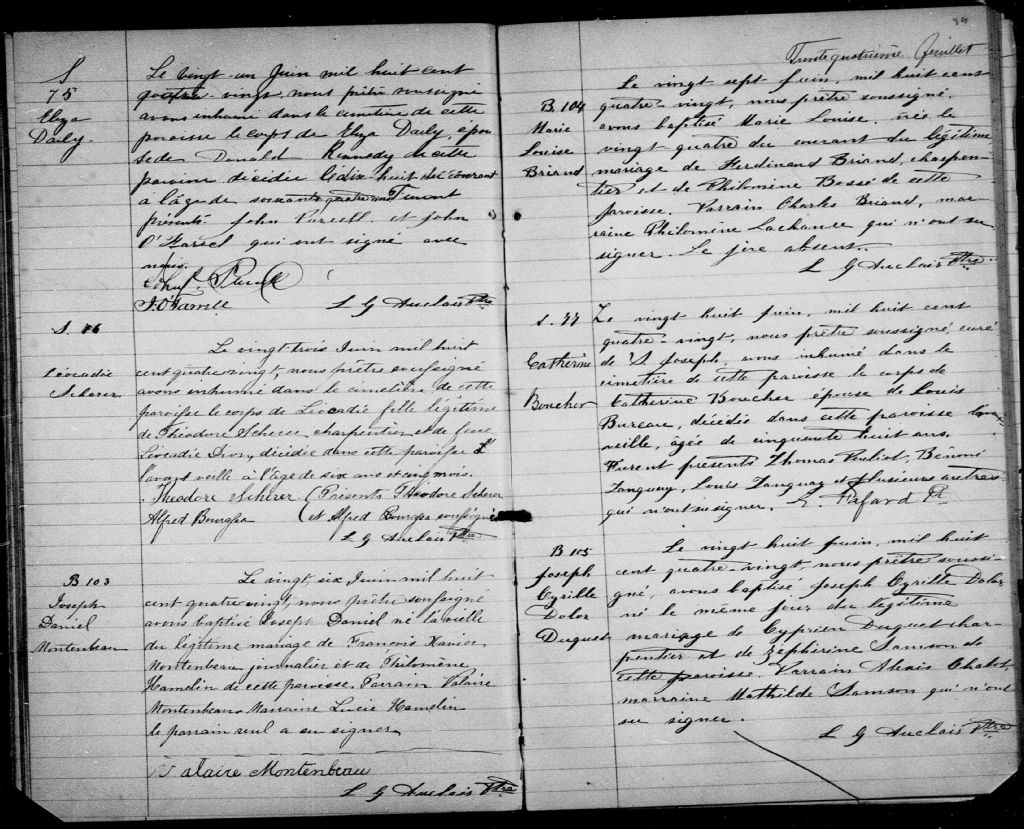 S
75
Eliza
Daily.
Le vingt-un Juin mil huit cent
quatre-vingt, nous prêtre soussigné
avons inhumé dans le cimetière de cette
paroisse le corps de Eliza Daily, épou
se de Donald Kennedy de cette
paroisse décédée le dix-huit du courant
a l'âge de soixante quatre ans Furent
présents John Purcell et John
O'Farrel qui ont signé avec
nous.
J. O'Farrell
L G Auclair Ptre
S. 76
Léocadie
Scherer.
Le vingt trois Juin mil huit
cent quatre vingt, nous prêtre soussigné
avons inhumé dans le cimetière de cette
paroisse le corps de Léocadie fille légitime
de Théodore Scherer charpentier et de feue
Léocadie décédée dans cette paroisse
l'avant veille à l'âge de six ans et cinq mois.
Théodore Scherer (Présents Théodore Scherer
Alfred Bourassa (et Alfred Bourassa soussignés
L G Auclair Ptre
B 103
Joseph
Daniel
Montenbeau
Le vingt six Juin mil huit
cent quatre vingt, nous prêtre soussigné
avons baptisé Joseph Daniel né la veille
du légitime mariage de François Xavier
Montenbeau journalier et de Philomène
Hamelin de cette paroisse. Parrain Valaire
Montenbeau Marraine Lucie Hamelin
le parrain seul a su signer
Valaire Montenbeau
L G Auclair Ptre
34
Trente quatrième feuillet
B. 104
Marie
Louise
Briand
Le vingt sept Juin, mil huit cent
quatre-vingt, nous prêtre soussigné,
avons baptisé Marie Louise, née le
vingt quatre du courant du légitime
mariage de Ferdinand Briand, charpen-
tier et de Philomène Bossé de cette
paroisse. Parrain Charles Briand, mar-
raine Philomène Lachance qui n'ont su
signer. Le père absent.
L G Auclair Ptre
S. 77
Catherine
Boucher
Le vingt huit Juin, mil huit cent
quatre-vingt, nous prêtre soussigné, curé
de St Joseph, avons inhumé dans le
cimetière de cette paroisse le corps de
Catherine Boucher épouse de Louis
Bureau, décédée dans cette paroisse l'avant-
veille, âgée de cinquante huit ans.
Furent presents Thomas Pouliot, Bénoni
Tanguay, Louis Tanguay et plusieurs autres
qui n'ont su signer. E. Fafard
B 105
Joseph
Cyrille
Dolor
Duquet
Le vingt huit Juin, mil huit
cent quatre-vingt, nous prêtre soussi-
gné, avons baptisé Joseph Cyrille Dolor
né le même jour du légitime
mariage de Cyprien Duquet char-
pentier et de Zéphirine Samson de
cette paroisse. Parrain Alexis Chabot,
marraine Mathilde Samson qui n'ont
su signer.
L G Auclair Ptre